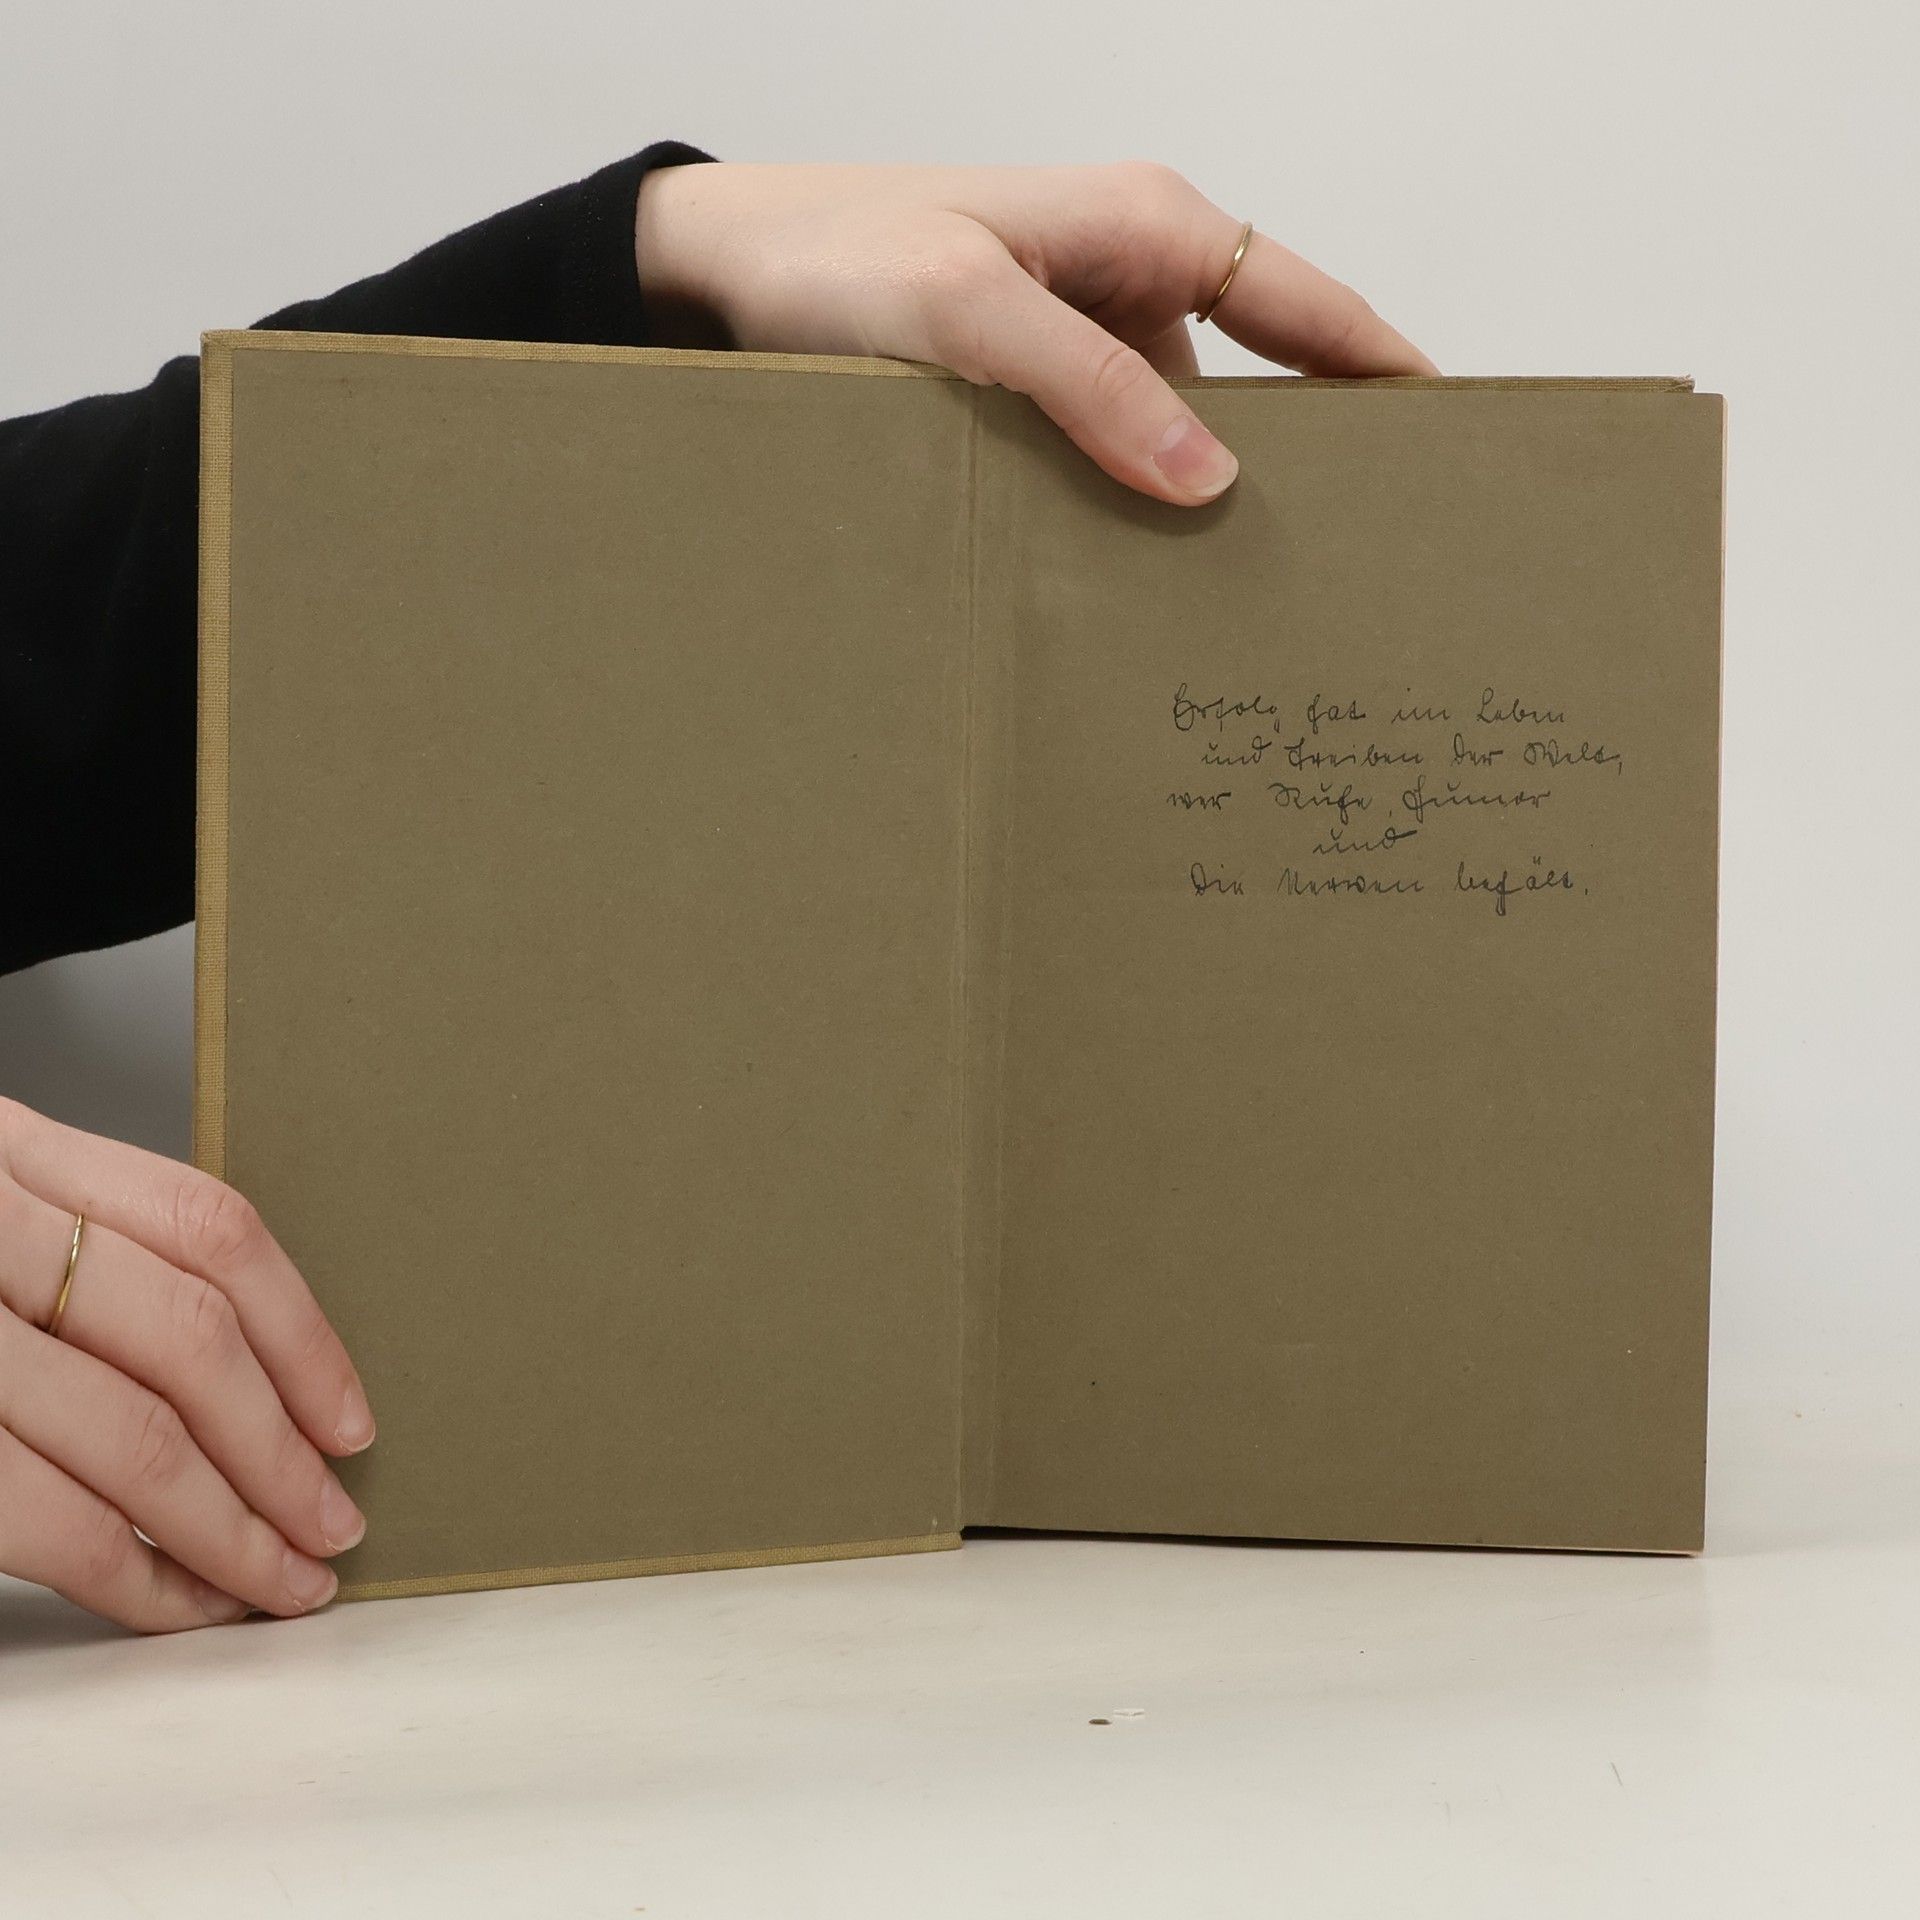 Erfolg hat im Leben
und Treiben der Welt,
wer Ruhe, Humor
und
die Nerven behält.